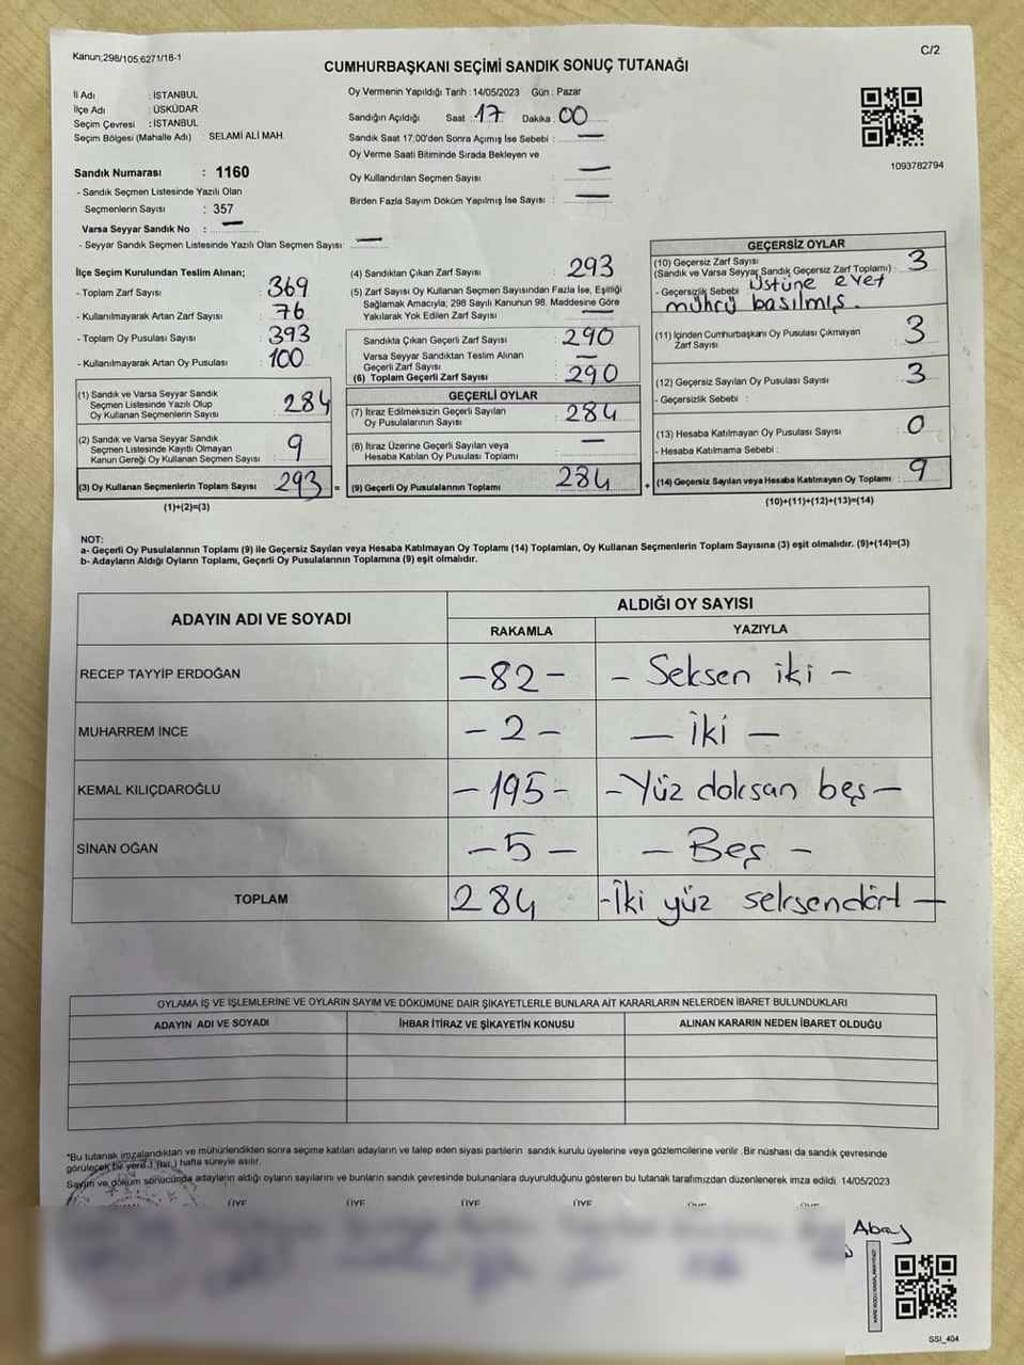 Kanun;298/105;6271/18-1
C/2
CUMHURBAŞKANI SEÇİMİ SANDIK SONUÇ TUTANAĞI
İl Adı : İSTANBUL
İlçe Adı : ÜSKÜDAR
Seçim Çevresi : İSTANBUL
Seçim Bölgesi (Mahalle Adı) SELAMİ ALİ MAH.
Sandık Numarası : 1160
- Sandık Seçmen Listesinde Yazılı Olan
Seçmenlerin Sayısı : 357
Varsa Seyyar Sandık No : —
- Seyyar Sandık Seçmen Listesinde Yazılı Olan Seçmen Sayısı : —
Oy Vermenin Yapıldığı Tarih : 14/05/2023 Gün : Pazar
Sandığın Açıldığı Saat : 17 Dakika : 00
Sandık Saat 17:00'den Sonra Açımış İse Sebebi : —
Oy Verme Saati Bitiminde Sırada Bekleyen ve
Oy Kullandırılan Seçmen Sayısı : —
Birden Fazla Sayım Döküm Yapılmış İse Sayısı : —
1093782794
İlçe Seçim Kurulundan Teslim Alınan;
- Toplam Zarf Sayısı : 369
- Kullanılmayarak Artan Zarf Sayısı : 76
- Toplam Oy Pusulası Sayısı : 393
- Kullanılmayarak Artan Oy Pusulası : 100
(1) Sandık ve Varsa Seyyar Sandık
Seçmen Listesinde Yazılı Olup
Oy Kullanan Seçmenlerin Sayısı : 284
(2) Sandık ve Varsa Seyyar Sandık
Seçmen Listesinde Kayıtlı Olmayan
Kanun Gereği Oy Kullanan Seçmen Sayısı : 9
(3) Oy Kullanan Seçmenlerin Toplam Sayısı : 293 =
(1)+(2)=(3)
(4) Sandıktan Çıkan Zarf Sayısı : 293
(5) Zarf Sayısı Oy Kullanan Seçmen Sayısından Fazla İse, Eşitliği
Sağlamak Amacıyla; 298 Sayılı Kanunun 98. Maddesine Göre
Yakılarak Yok Edilen Zarf Sayısı : —
Sandıkta Çıkan Geçerli Zarf Sayısı : 290
Varsa Seyyar Sandıktan Teslim Alınan
Geçerli Zarf Sayısı : —
(6) Toplam Geçerli Zarf Sayısı : 290
GEÇERLİ OYLAR
(7) İtiraz Edilmeksizin Geçerli Sayılan
Oy Pusulalarının Sayısı : 284
(8) İtiraz Üzerine Geçerli Sayılan veya
Hesaba Katılan Oy Pusulası Toplamı : —
(9) Geçerli Oy Pusulalarının Toplamı : 284 +
GEÇERSİZ OYLAR
(10) Geçersiz Zarf Sayısı : 3
(Sandık ve Varsa Seyyar Sandık Geçersiz Zarf Toplamı)
- Geçersizlik Sebebi : Üstüne evet
mührü basılmış.
(11) İçinden Cumhurbaşkanı Oy Pusulası Çıkmayan
Zarf Sayısı : 3
(12) Geçersiz Sayılan Oy Pusulası Sayısı : 3
- Geçersizlik Sebebi :
(13) Hesaba Katılmayan Oy Pusulası Sayısı : 0
- Hesaba Katılmama Sebebi :
(14) Geçersiz Sayılan veya Hesaba Katılmayan Oy Toplamı : 9
(10)+(11)+(12)+(13)=(14)
NOT:
a- Geçerli Oy Pusulalarının Toplamı (9) ile Geçersiz Sayılan veya Hesaba Katılmayan Oy Toplamı (14) Toplamları, Oy Kullanan Seçmenlerin Toplam Sayısına (3) eşit olmalıdır. (9)+(14)=(3)
b- Adayların Aldığı Oyların Toplamı, Geçerli Oy Pusulalarının Toplamına (9) eşit olmalıdır.
ADAYIN ADI VE SOYADI
ALDIĞI OY SAYISI
RAKAMLA YAZIYLA
RECEP TAYYİP ERDOĞAN -82- - Seksen iki -
MUHARREM İNCE -2- - İki -
KEMAL KILIÇDAROĞLU -195- - Yüz doksan beş -
SİNAN OĞAN -5- - Beş -
TOPLAM 284 - İki yüz seksendört -
OYLAMA İŞ VE İŞLEMLERİNE VE OYLARIN SAYIM VE DÖKÜMÜNE DAİR ŞİKAYETLERLE BUNLARA AİT KARARLARIN NELERDEN İBARET BULUNDUKLARI
ADAYIN ADI VE SOYADI İHBAR İTİRAZ VE ŞİKAYETİN KONUSU ALINAN KARARIN NEDEN İBARET OLDUĞU
*Bu tutanak imzalandıktan ve mühürlendikten sonra seçime katılan adayların ve talep eden siyasi partilerin sandık kurulu üyelerine veya gözlemcilerine verilir. Bir nüshası da sandık çevresinde
görülecek bir yere 1 (bir) hafta süreyle asılır.
Sayım ve döküm sonucunda adayların aldığı oyların sayılarını ve bunların sandık çevresinde bulunanlara duyurulduğunu gösteren bu tutanak tarafımızdan düzenlenerek imza edildi. 14/05/2023
ÜYE ÜYE ÜYE ÜYE
Abay
SSI_404